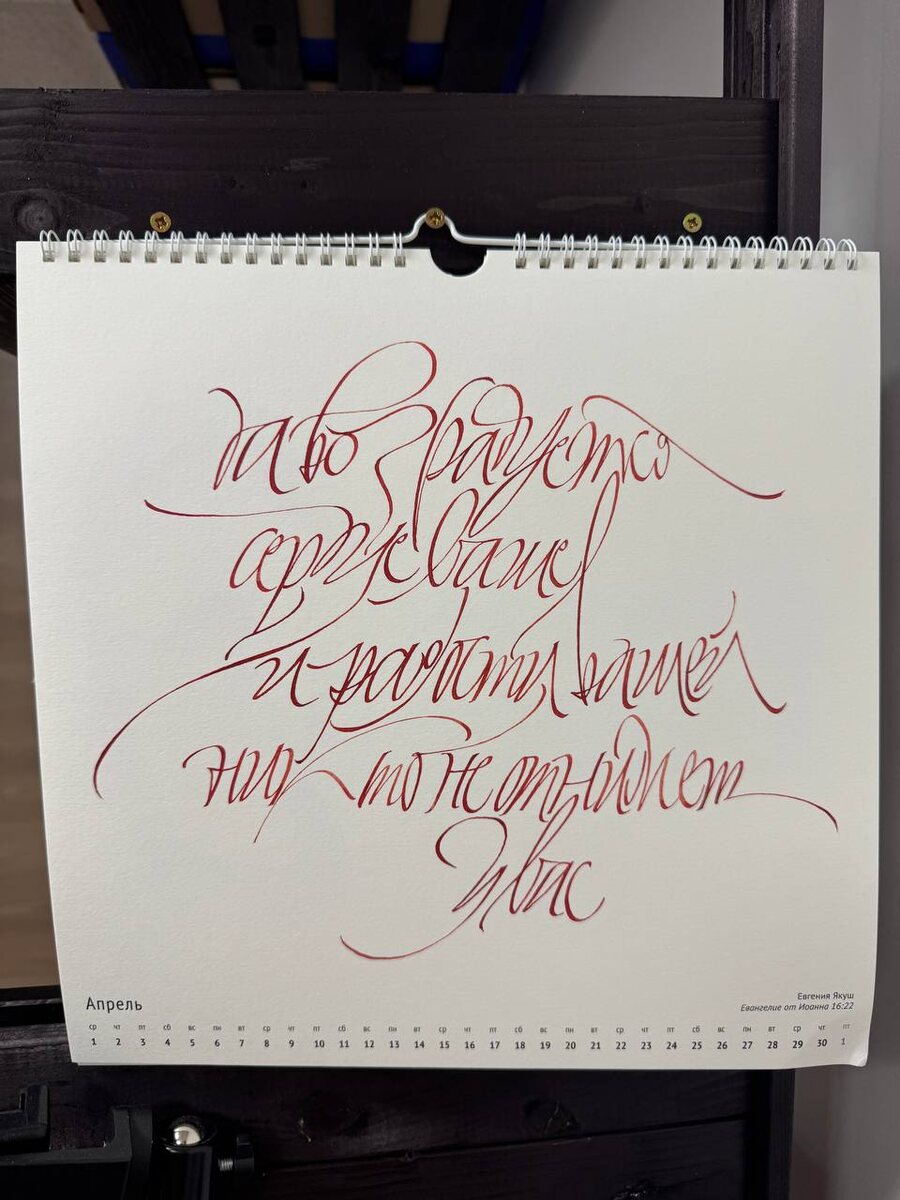 да возрадуется
сердце ваше
и радости вашей
никто не отнимет
у вас
Апрель
Евгения Якуш
Евангелие от Иоанна 16:22
ср чт пт сб вс пн вт ср чт пт сб вс пн вт ср чт пт сб вс пн вт ср чт пт сб вс пн вт ср чт пт
1 2 3 4 5 6 7 8 9 10 11 12 13 14 15 16 17 18 19 20 21 22 23 24 25 26 27 28 29 30 1